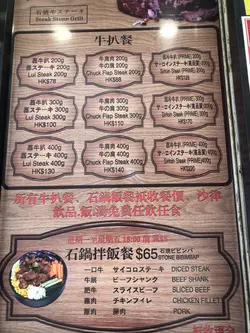 石鍋牛ステーキ
Steak Stone Grill
牛扒餐
呂牛扒 200g
呂ステーキ 200g
Lui Steak 200g
HK$78
牛肩肉 200g
牛の肩 200g
Chuck Flap Steak 200g
HK$88
西冷牛扒 (PRIME) 200g
Sirloin Steak (PRIME) 200g
呂牛扒 300g
呂ステーキ 300g
Lui Steak 300g
HK$110
牛肩肉 300g
牛の肩 300g
Chuck Flap Steak 300g
HK$
西冷牛扒 (PRIME) 300g
Sirloin Steak (PRIME) 300g
呂牛扒 400g
呂ステーキ 400g
Lui Steak 400g
HK$140
牛肩肉 400g
牛の肩 400g
Chuck Flap Steak 400g
HK$150
西冷牛扒 (PRIME) 400g
Sirloin Steak (PRIME) 400g
所有牛扒餐、石鍋飯餐祗收餐價、沙律
飲品,飯,湯免費任飲任食
星期一至星期五 18:00
石鍋拌飯餐 $65 石焼ビビンバ
STONE BIBIMBAP
一口牛 サイコロステーキ DICED STEAK
牛𦟌 ビーフシャンク BEEF SHANK
肥牛 スライスビーフ SLICED BEEF
雞肉 チキンフィレ CHICKEN FILLET
豚肉 豚肉 PORK